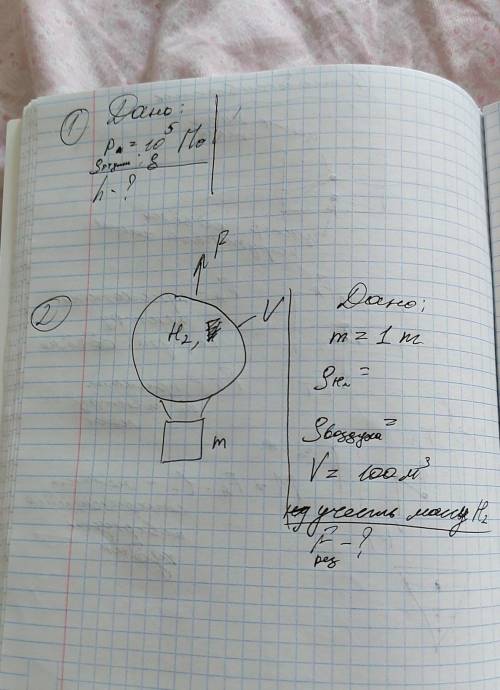 1 Дано:
Pₐ = 10⁵ Па
h - ?
2
F
V
H₂,
m
Дано:
m = 1 т
ρH₂ =
ρвоздуха =
V = 100 м³
учесть массу H₂
Fрез - ?